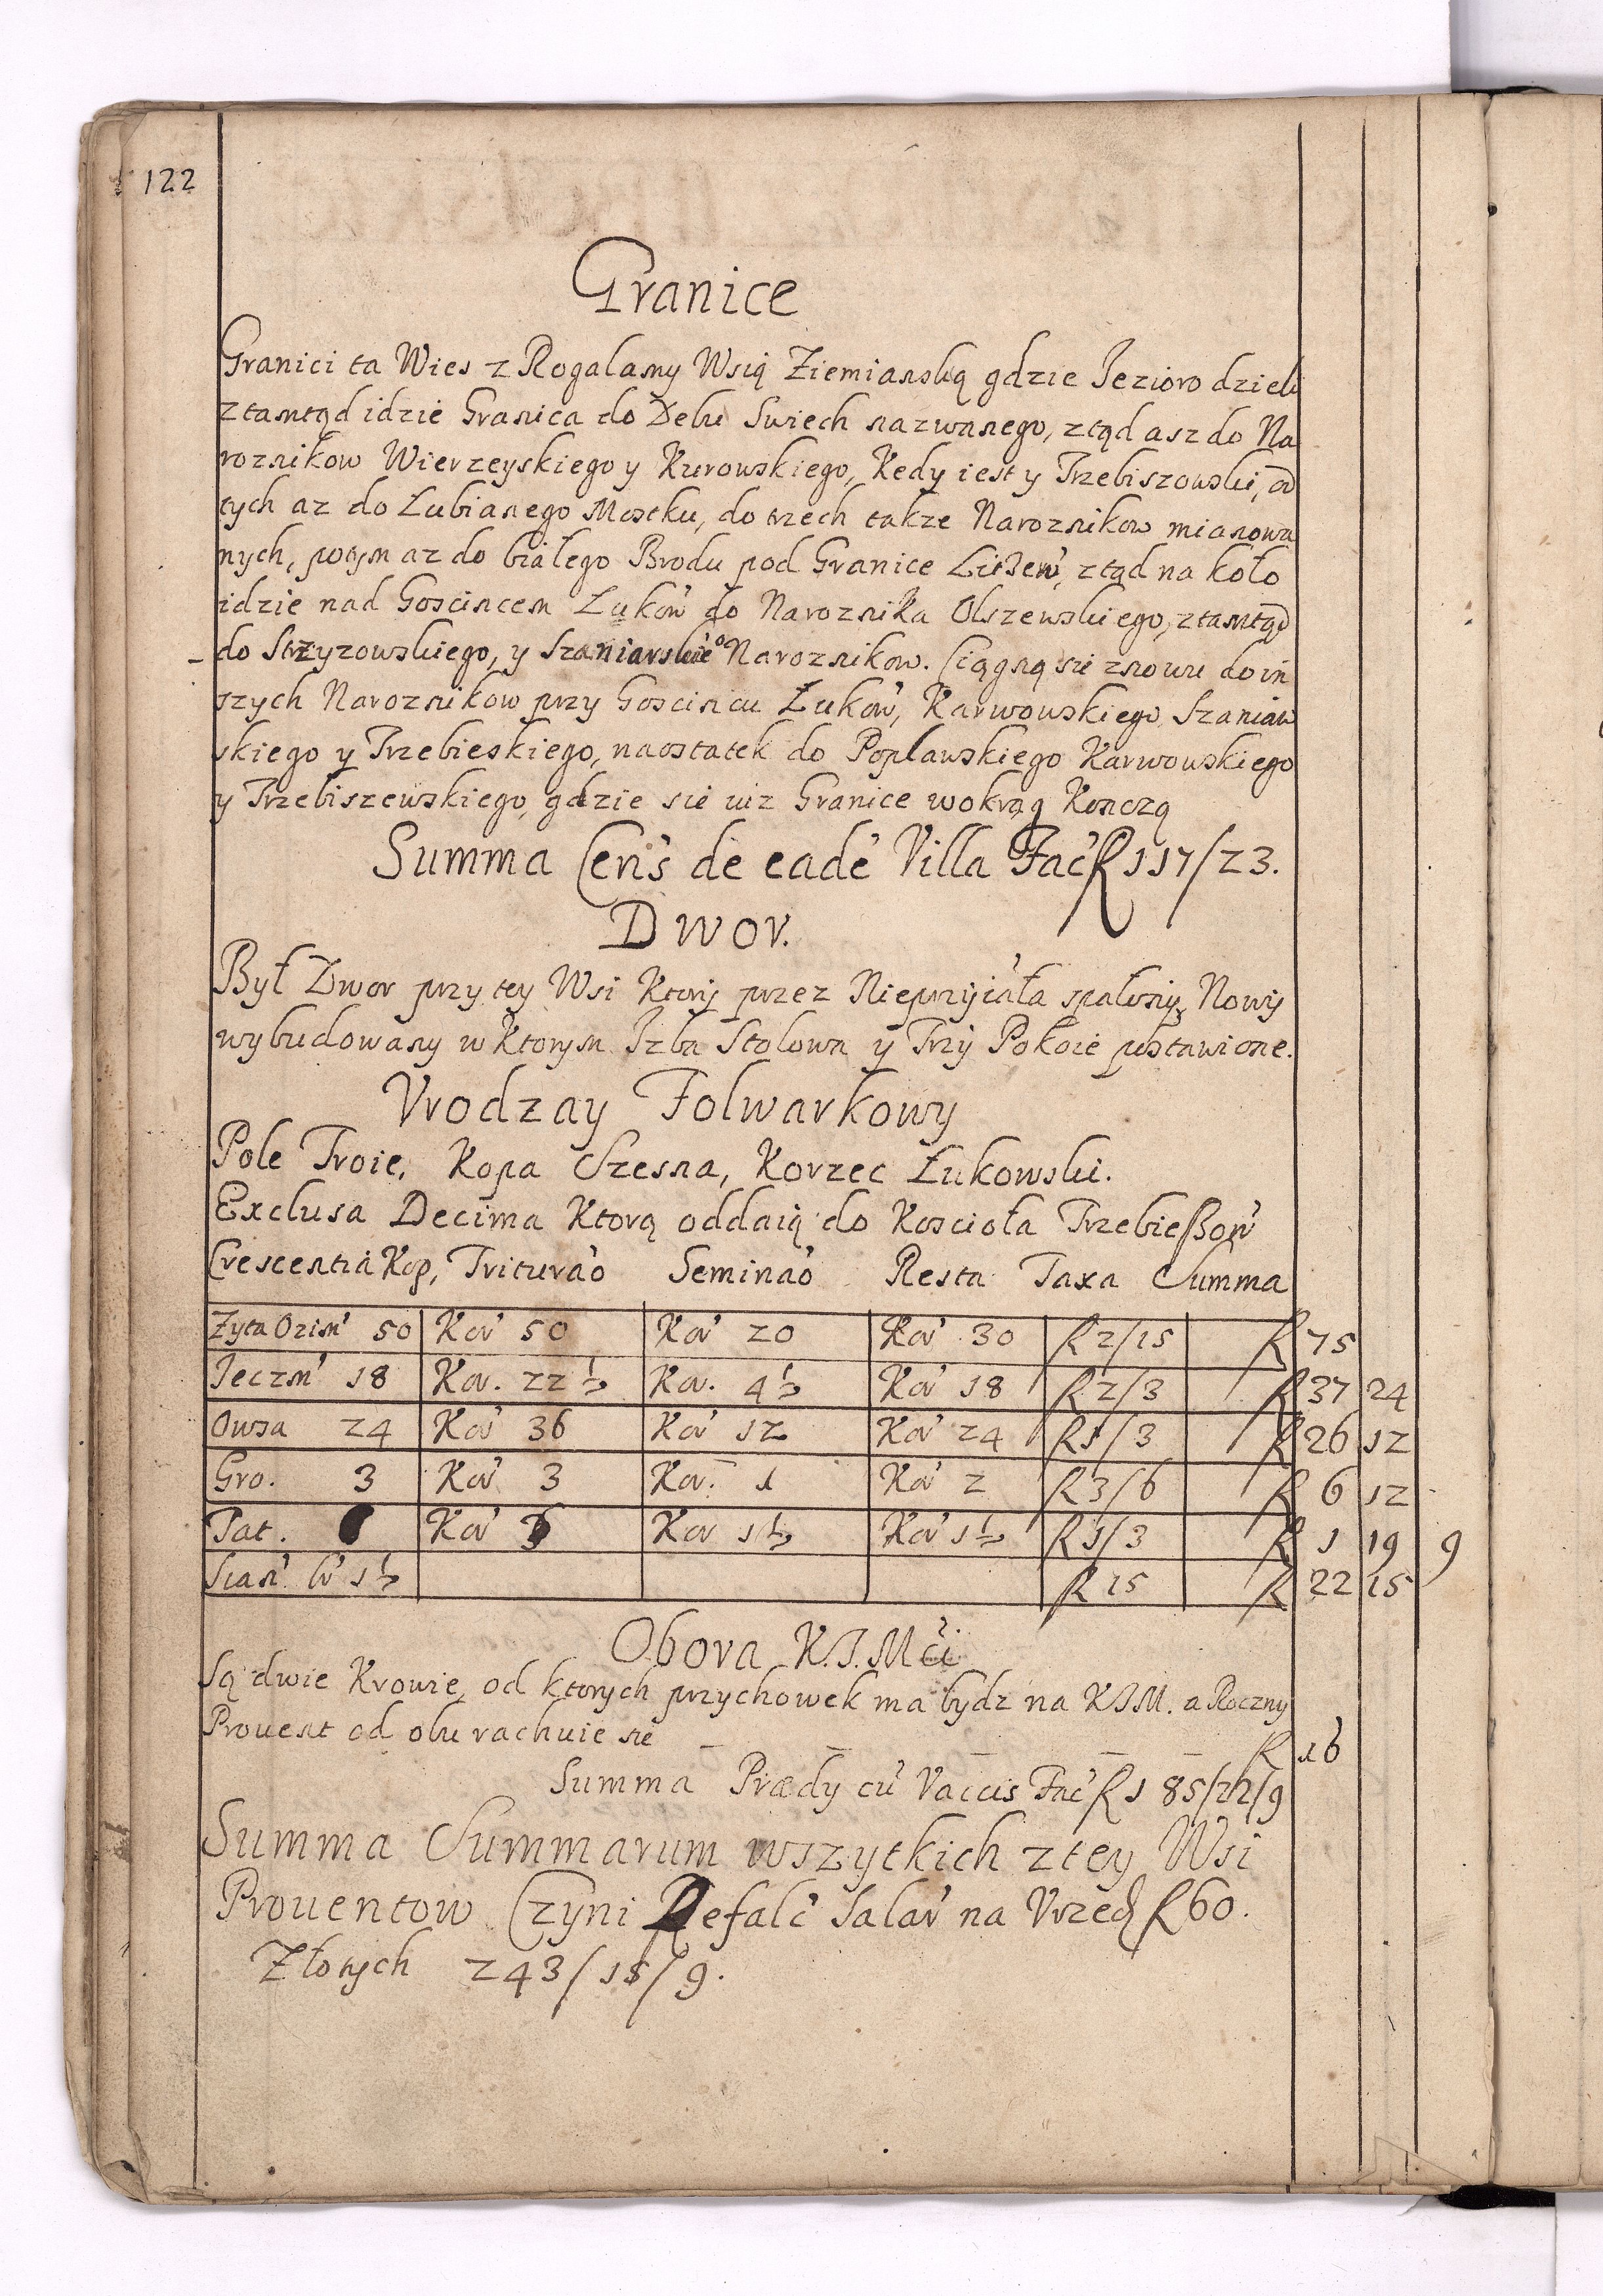 122
Granice
Granici ta Wies z Rogalamy Wsią Ziemianską gdzie Iezioro dzieli
ztamtąd idzie Granica do Debu Swiech nazwanego, ztąd asz do Na
roznikow Wierzeyskiego y Kurowskiego, Kedy iest y Trzebiszowski, od
tych az do Łubianego Mostku, do trzech takze Naroznikow mianowa
nych, potym az do białego Brodu pod Granice ztąd na koło
idzie nad Goscincem Łuków do Naroznika Olszewskiego, ztamtąd
do Strzyzowskiego, y Szaniawskieo Naroznikow. Ciągną sie znowu do in
szych Naroznikow przy Goscincu Łuków, Karwowskiego, Szaniaw
skiego y Trzebieskiego, naostatek do Popławskiego Karwowskiego
y Trzebiszewskiego, gdzie sie iuz Granice wokrąg Konczą
Summa Cens de eade Villa Fac ƒ 117/23.
Dwor.
Był Dwor przy tey Wsi Ktory przez Nieprzyiaciela spalony, Nowy
wybudowany w Ktorym Izba Stolowa y Trzy Pokoie postawione.
Vrodzay Folwarkowy
Pole Troie, Kopa Szesna, Korzec Łukowski.
Exclusa Decima Ktorą oddaią do Koscioła Trzebieszow
Crescentia Kop, Triturao Seminao Resta Taxa Summa
Zyta Ozim 50 Kor 50 Kor 20 Kor 30 ƒ 2/15 ƒ 75
Ieczm 18 Kor. 22½ Kor. 4½ Kor 18 ƒ 2/3 ƒ 37 24
Owsa 24 Kor 36 Kor 12 Kor 24 ƒ 1/3 ƒ 26 12
Gro. 3 Kor 3 Kor. 1 Kor 2 ƒ 3/6 ƒ 6 12
Tat. Kor 3 Kor 1½ Kor 1½ ƒ 1/3 ƒ 1 19 9
Sian 1½ ƒ 15 ƒ 22 15
Obora K.I.Mći
Są dwie Krowie, od ktorych przychowek ma bydz na KIM. a Roczny
Prouent od obu rachuie sie ƒ 16
Summa Prædy cu Vaccis Fac ƒ 185/22/9
Summa Summarum wszytkich z tey Wsi
Prouentow Czyni Defalc Salar na Vrzed ƒ 60.
Złotych 243/15/9.